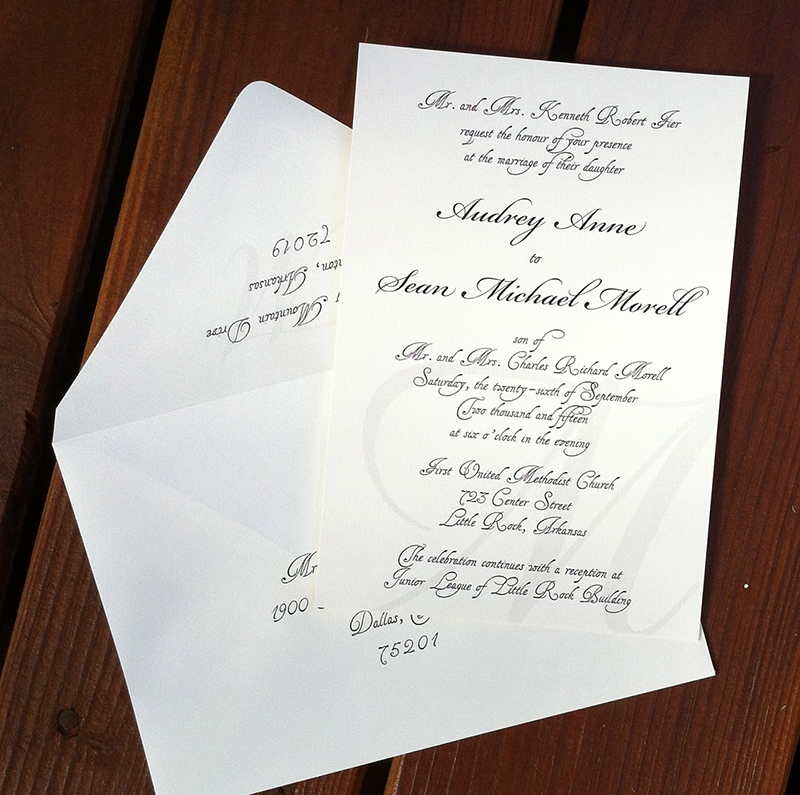 Mr. and Mrs. Kenneth Robert Fier
request the honour of your presence
at the marriage of their daughter
Audrey Anne
to
Sean Michael Morell
son of
Mr. and Mrs. Charles Richard Morell
Saturday, the twenty-sixth of September
Two thousand and fifteen
at six o'clock in the evening
First United Methodist Church
723 Center Street
Little Rock, Arkansas
The celebration continues with a reception at
Junior League of Little Rock Building
M
Mountain Drive
Arkansas
72019
Mr
1900
Dallas,
75201